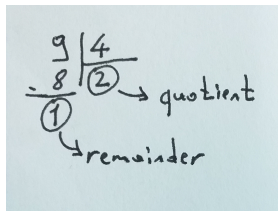 9 4
- 8 2 quotient
1
remainder